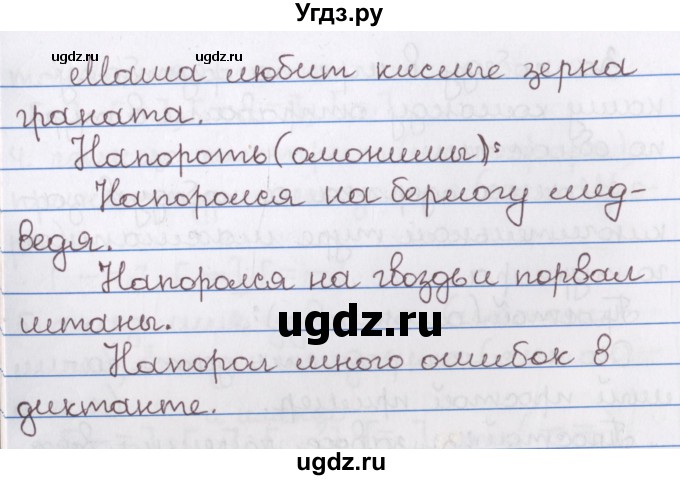 Угдз.ру
ugdz.ru ugdz.ru
Маша любит кислые зерна
граната.
Напороть (омонимы):
Напоролся на берлогу мед-
ведя.
ugdz.ru ugdz.ru
Напоролся на гвоздь и порвал
штаны.
ugdz.ru
Напорол много ошибок в
диктанте.
ugdz.ru ugdz.ru
ugdz.ru